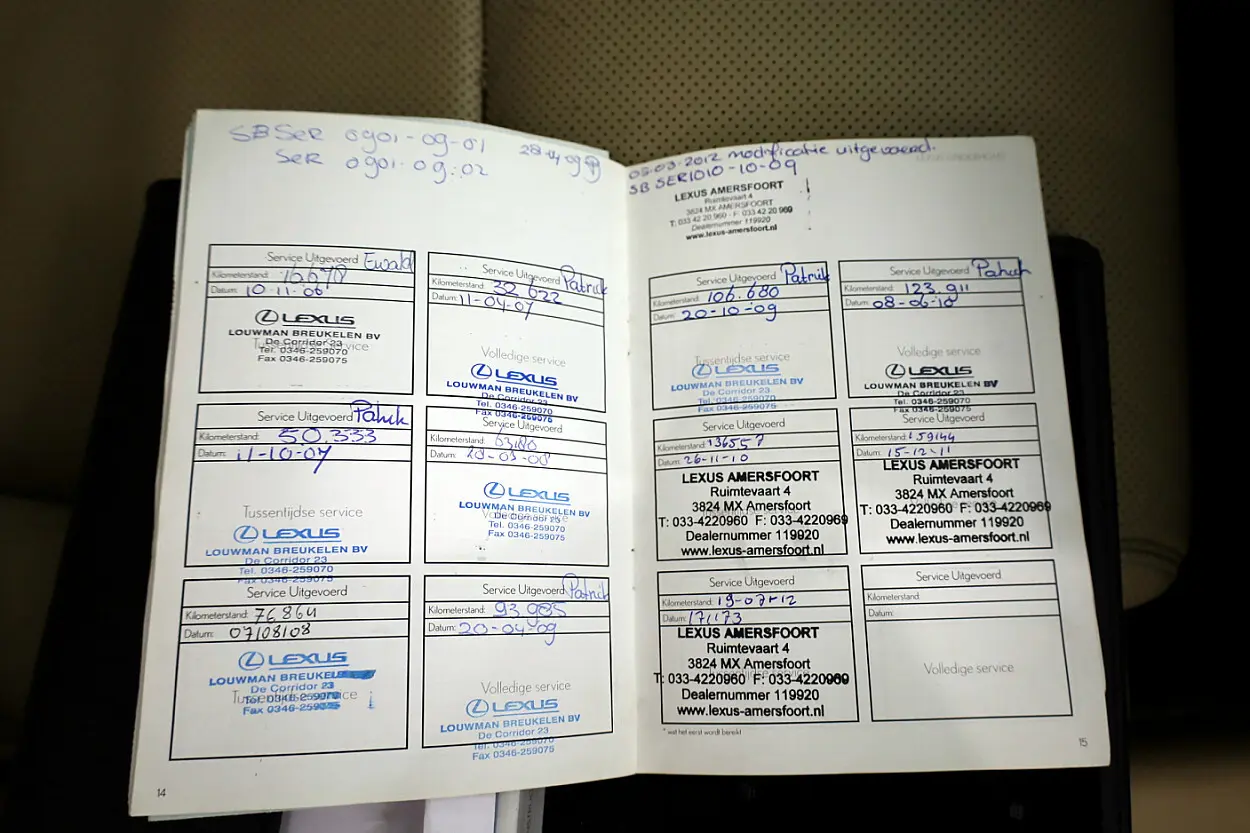 SB SER 0901-09-01
SER 0901-09-02
28-04-09
Service Uitgevoerd Ewald
Kilometerstand: 16678
Datum: 10-11-06
LEXUS
LOUWMAN BREUKELEN BV
De Corridor 23
Tel. 0346-259070
Fax 0346-259075
Service Uitgevoerd Patrick
Kilometerstand: 32 622
Datum: 11-04-07
Volledige service
LEXUS
LOUWMAN BREUKELEN BV
De Corridor 23
Tel. 0346-259070
Fax 0346-259075
Service Uitgevoerd Patrick
Kilometerstand: 50.333
Datum: 11-10-07
Tussentijdse service
LEXUS
LOUWMAN BREUKELEN BV
De Corridor 23
Tel. 0346-259070
Fax 0346-259075
Service Uitgevoerd
Kilometerstand:
Datum:
LEXUS
LOUWMAN BREUKELEN BV
De Corridor 23
Tel. 0346-259070
Fax 0346-259075
Service Uitgevoerd
Kilometerstand: 76864
Datum: 07/08/08
LEXUS
LOUWMAN BREUKELEN
De Corridor 23
Tussentijdse service
Tel. 0346-259070
Fax 0346-259075
Service Uitgevoerd Patrick
Kilometerstand: 93.985
Datum: 20-04-09
Volledige service
LEXUS
LOUWMAN BREUKELEN BV
Tel. 0346-259070
Fax 0346-259075
14
05-03-2012 modificatie uitgevoerd.
SB SER1010-10-09
LEXUS AMERSFOORT
Ruimtevaart 4
3824 MX AMERSFOORT
T: 033 42 20 960 - F: 033 42 20 969
Dealernummer 119920
www.lexus-amersfoort.nl
Service Uitgevoerd Patrick
Kilometerstand: 106.680
Datum: 20-10-09
Tussentijdse service
LEXUS
LOUWMAN BREUKELEN BV
De Corridor 23
Tel. 0346-259070
Fax 0346-259075
Service Uitgevoerd Patrick
Kilometerstand: 123.911
Datum: 08-06-10
Volledige service
LEXUS
LOUWMAN BREUKELEN BV
De Corridor 23
Tel. 0346-259070
Fax 0346-259075
Service Uitgevoerd
Kilometerstand: 136557
Datum: 26-11-10
LEXUS AMERSFOORT
Ruimtevaart 4
3824 MX Amersfoort
T: 033-4220960 F: 033-4220969
Dealernummer 119920
www.lexus-amersfoort.nl
Service Uitgevoerd
Kilometerstand: 159144
Datum: 15-12-11
LEXUS AMERSFOORT
Ruimtevaart 4
3824 MX Amersfoort
T: 033-4220960 F: 033-4220969
Dealernummer 119920
www.lexus-amersfoort.nl
Service Uitgevoerd
Kilometerstand: 19-07-12
Datum: 171173
LEXUS AMERSFOORT
Ruimtevaart 4
3824 MX Amersfoort
T: 033-4220960 F: 033-4220969
Dealernummer 119920
www.lexus-amersfoort.nl
Service Uitgevoerd
Kilometerstand:
Datum:
Volledige service
* wat het eerst wordt bereikt
15